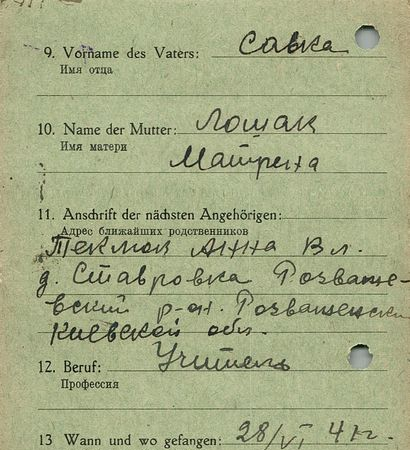 9. Vorname des Vaters: Савка
Имя отца
10. Name der Mutter: Лошак
Имя матери Матрена
11. Anschrift der nächsten Angehörigen:
Адрес ближайших родственников
Анна Вл.
д. Ставровка Розваже-
вский р-он.
Киевской обл.
12. Beruf: Учитель
Профессия
13 Wann und wo gefangen: 28/VI 41 г.